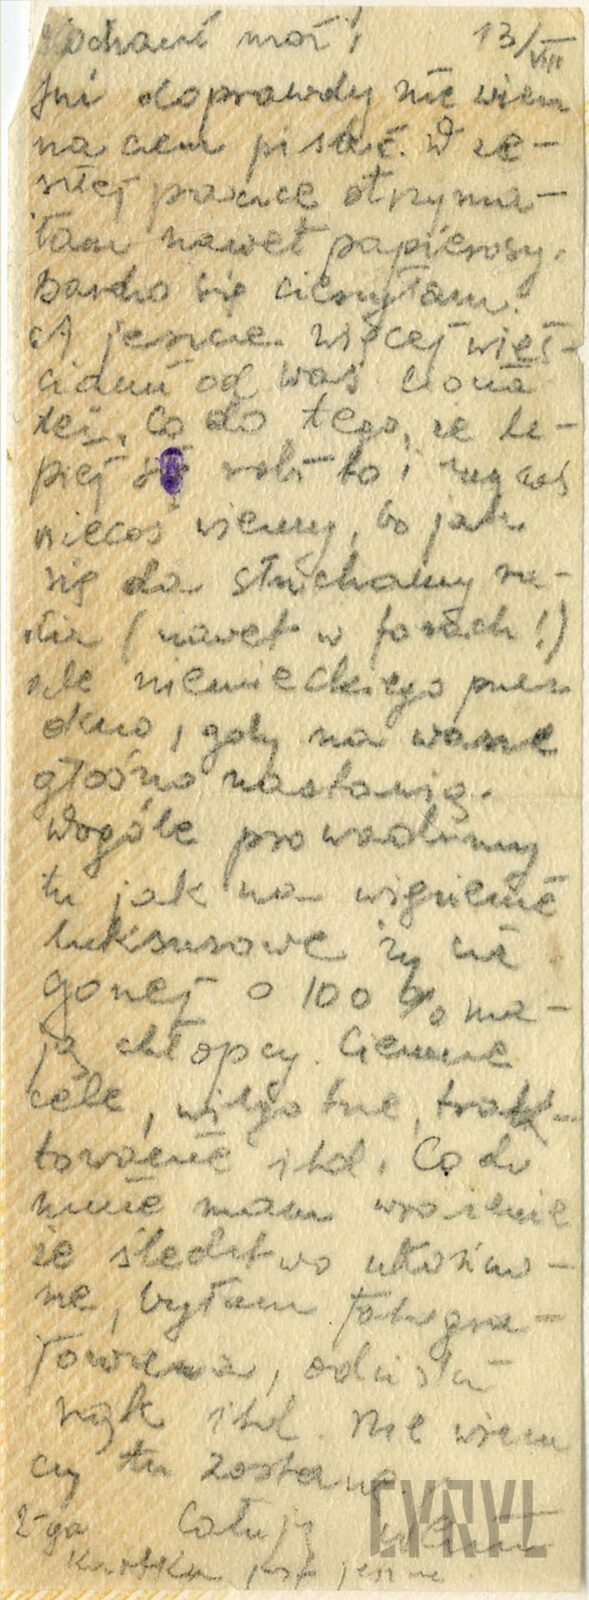 Kochani moi! 13/VIII
Już doprawdy nie wiem
na czem pisać. W ze-
szłej paczce otrzyma-
łam nawet papierosy.
Bardzo się cieszyłam.
A jeszcze więcej wieś-
ciami od Was
też. Co do tego, że le-
piej robi to i my coś
niecoś wiemy, bo jak
się da słuchamy ra-
dia (nawet w fosach!)
ale niemieckiego przez
okno, gdy na warcie
głośno nastawią.
Wogóle prowadzimy
tu jak na więzienie
luksusowe życie
gorzej o 100% ma-
ją chłopcy. Ciemne
cele, wilgotne, trak-
towanie itd. Co do
mnie mam wrażenie
że śledztwo ukończo-
ne, byłam fotogra-
fowana, odciski
rąk itd. Nie wiem
czy tu zostanę.
2-ga Całuję
kartka jest jeszcze
CYRYL